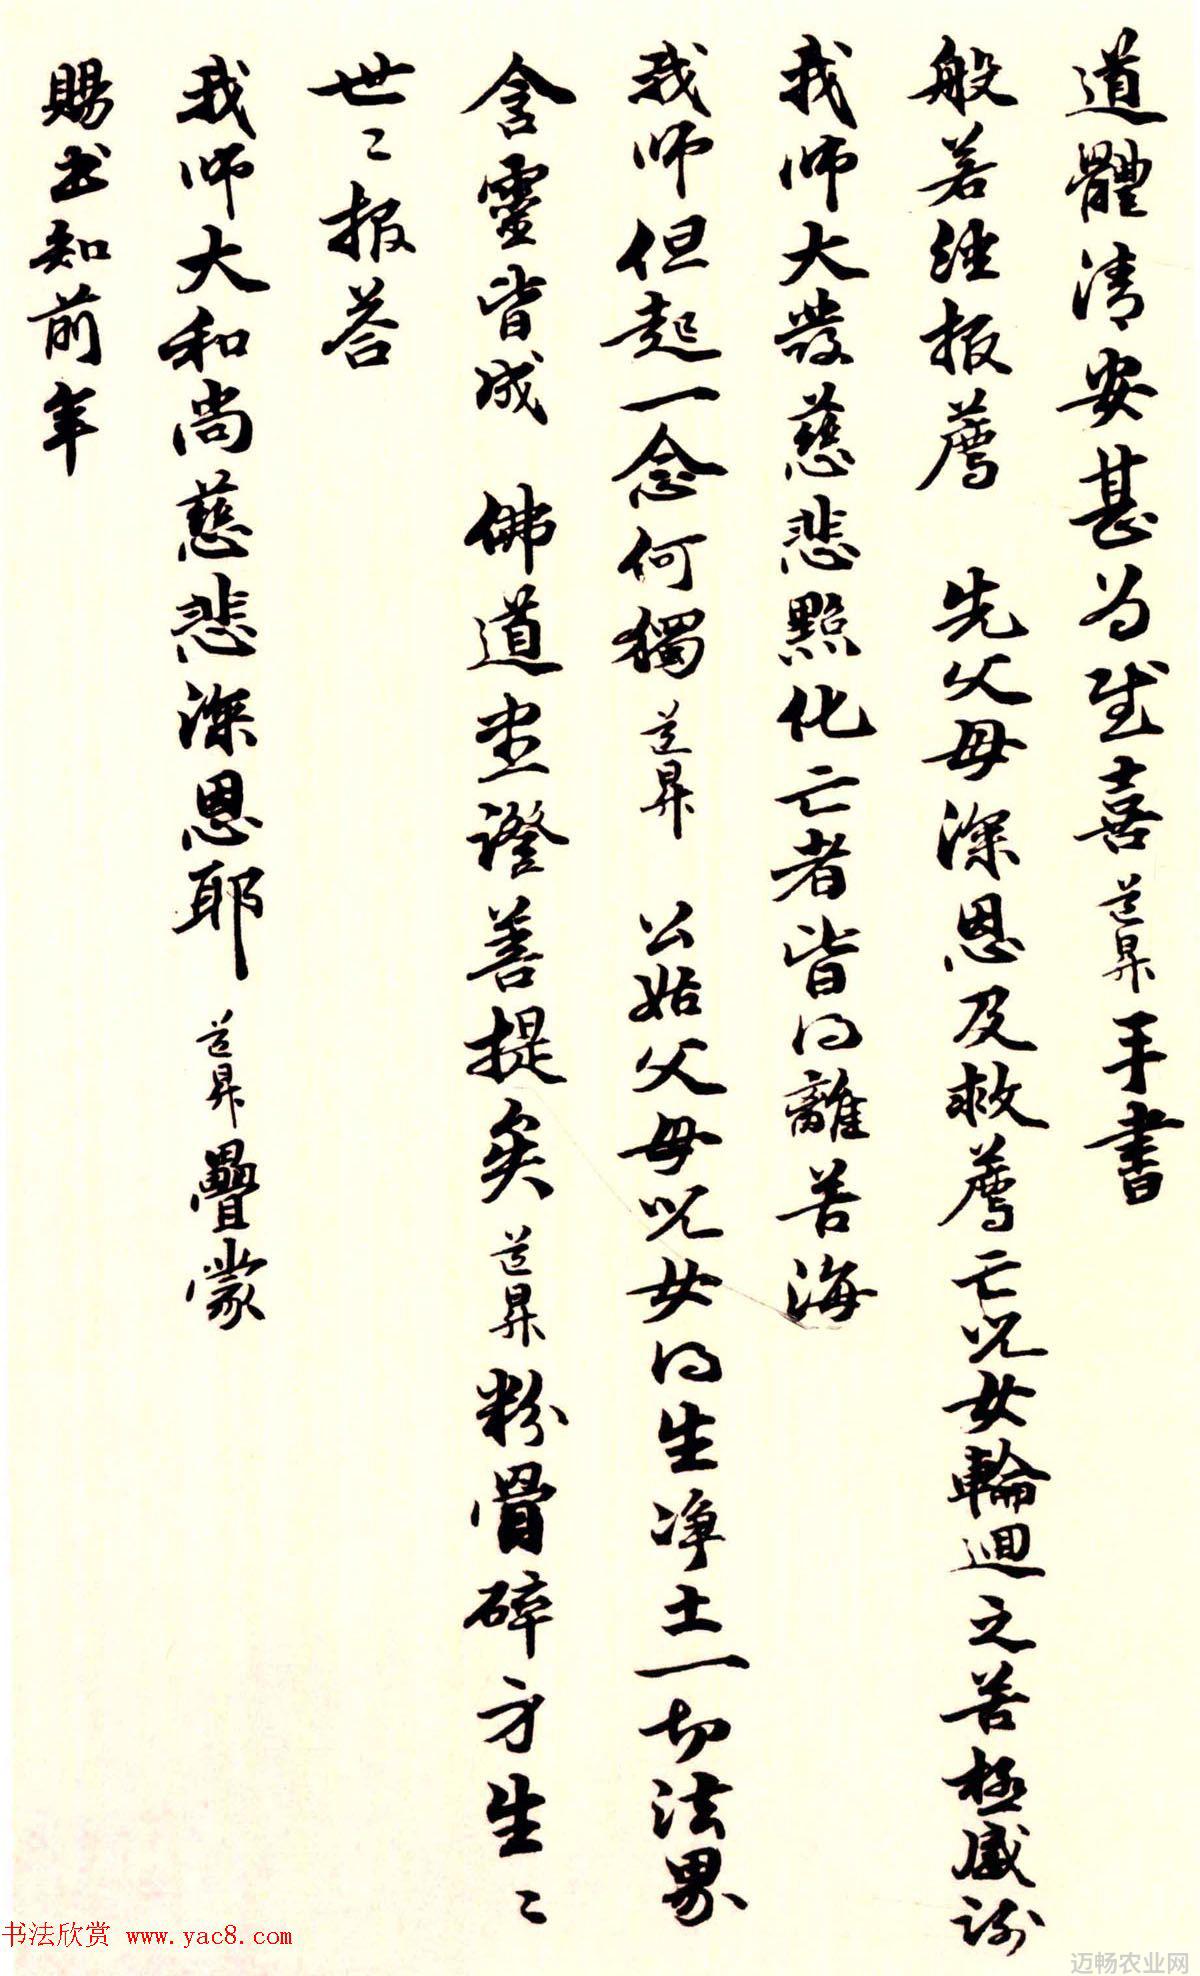 道體清安甚為感喜道昇手書
般若經報薦　先父母深恩及救薦亡兒女輪迴之苦極感謝
我師大發慈悲點化亡者皆得離苦海
我師但起一念何獨道昇　公姑父母兒女得生淨土一切法界
含靈皆成　佛道坐證菩提矣道昇粉骨碎身生〻
世〻報答
我師大和尚慈悲深恩耶道昇疊蒙
賜書知前年
书法欣赏 www.yac8.com
迈畅农业网